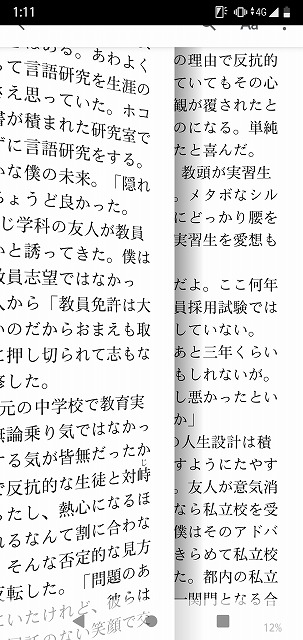 1:11
4G
Aa
はある。あわよく
って言語研究を生涯の
さえ思っていた。ホコ
書が積まれた研究室で
ずに言語研究をする。
いな僕の未来。「隠れ
ちょうど良かった。
じ学科の友人が教員
いと誘ってきた。僕は
教員志望ではなかっ
人から「教員免許は大
いのだからおまえも取
に押し切られて志もな
修した。
元の中学校で教育実
無論乗り気ではなかっ
する気が皆無だったか
じ
で反抗的な生徒と対峙
ったし、熱心になるほ
れるなんて割に合わな
。そんな否定的な見方
反転した。「問題のあ
にいたけれど、彼らは
のない笑顔で交
の理由で反抗的
ていてもその心
観が覆されたと
のになる。単純
たと喜んだ。
教頭が実習生
。メタボなシル
にどっかり腰を
実習生を愛想も
だよ。ここ何年
員採用試験では
していない。
あと三年くらい
もしれないが。
し悪かったとい
か」
の人生設計は積
すようにたやす
。友人が意気消
なら私立校を受
僕はそのアドバ
きらめて私立校
た。都内の私立
一関門となる合
12%